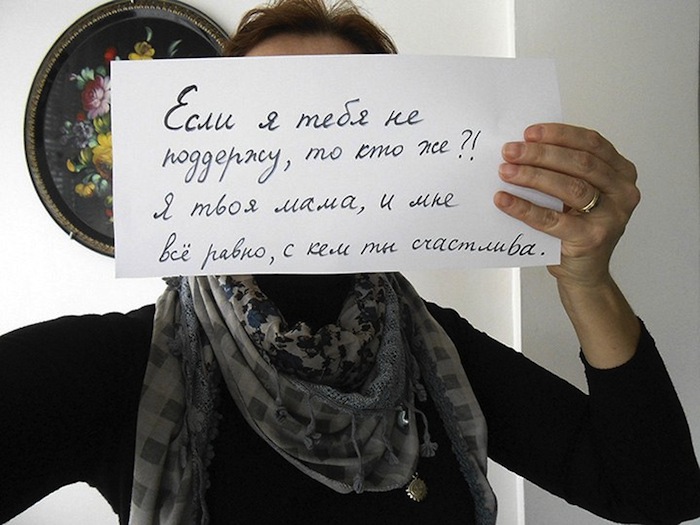 Если я тебя не
поддержу, то кто же?!
Я твоя мама, и мне
всё равно, с кем ты счастлива.